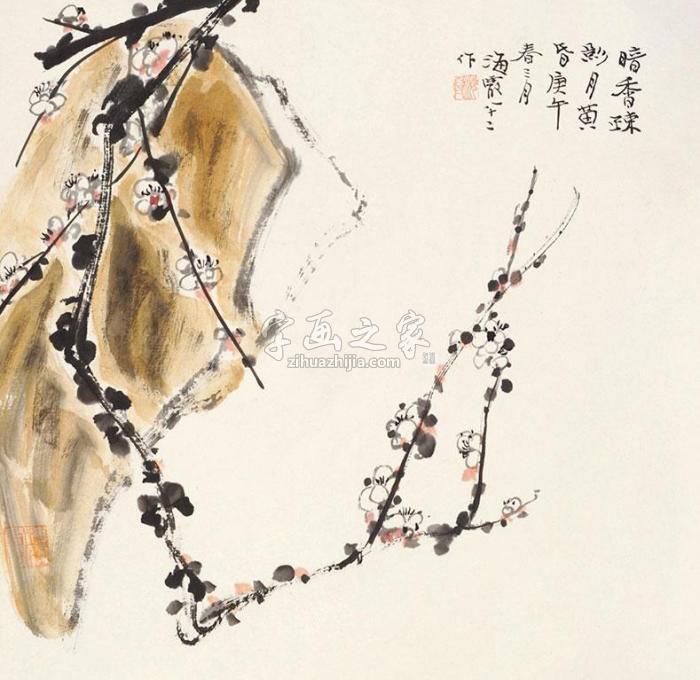 暗香疎
影月黄
昏庚午
春三月
海粟年九十二
作
字画之家
zihuazhijia.com